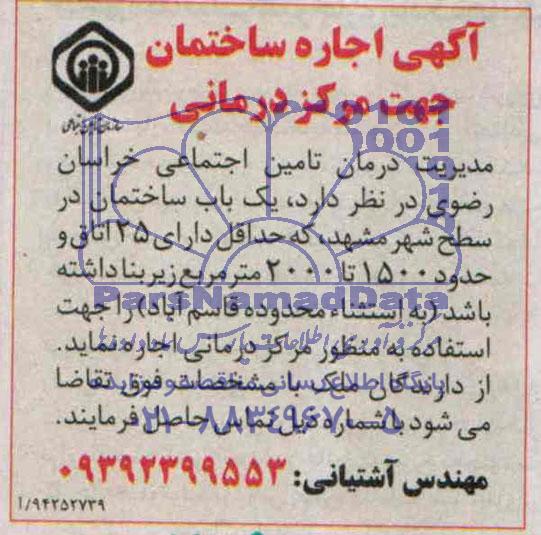 آگهی اجاره ساختمان
جهت مرکز درمانی
سازمان تامین اجتماعی
مدیریت درمان تامین اجتماعی خراسان
رضوی در نظر دارد، یک باب ساختمان در
سطح شهر مشهد، که حداقل دارای ۲۵ اتاق و
حدود ۱۵۰۰ تا ۲۰۰۰ متر مربع زیر بنا داشته
باشد (به استثناء محدوده قاسم آباد) را جهت
استفاده به منظور مرکز درمانی اجاره نماید.
از دارندگان ملک با مشخصات فوق تقاضا
می شود باشماره ذیل تماس حاصل فرمایند.
مهندس آشتیانی: ۰۹۳۹۲۳۹۹۵۵۳
۱/۹۴۲۵۲۷۳۹
ParsNamadData
۰۲۱-۸۸۳۴۹۶۷۰-۵